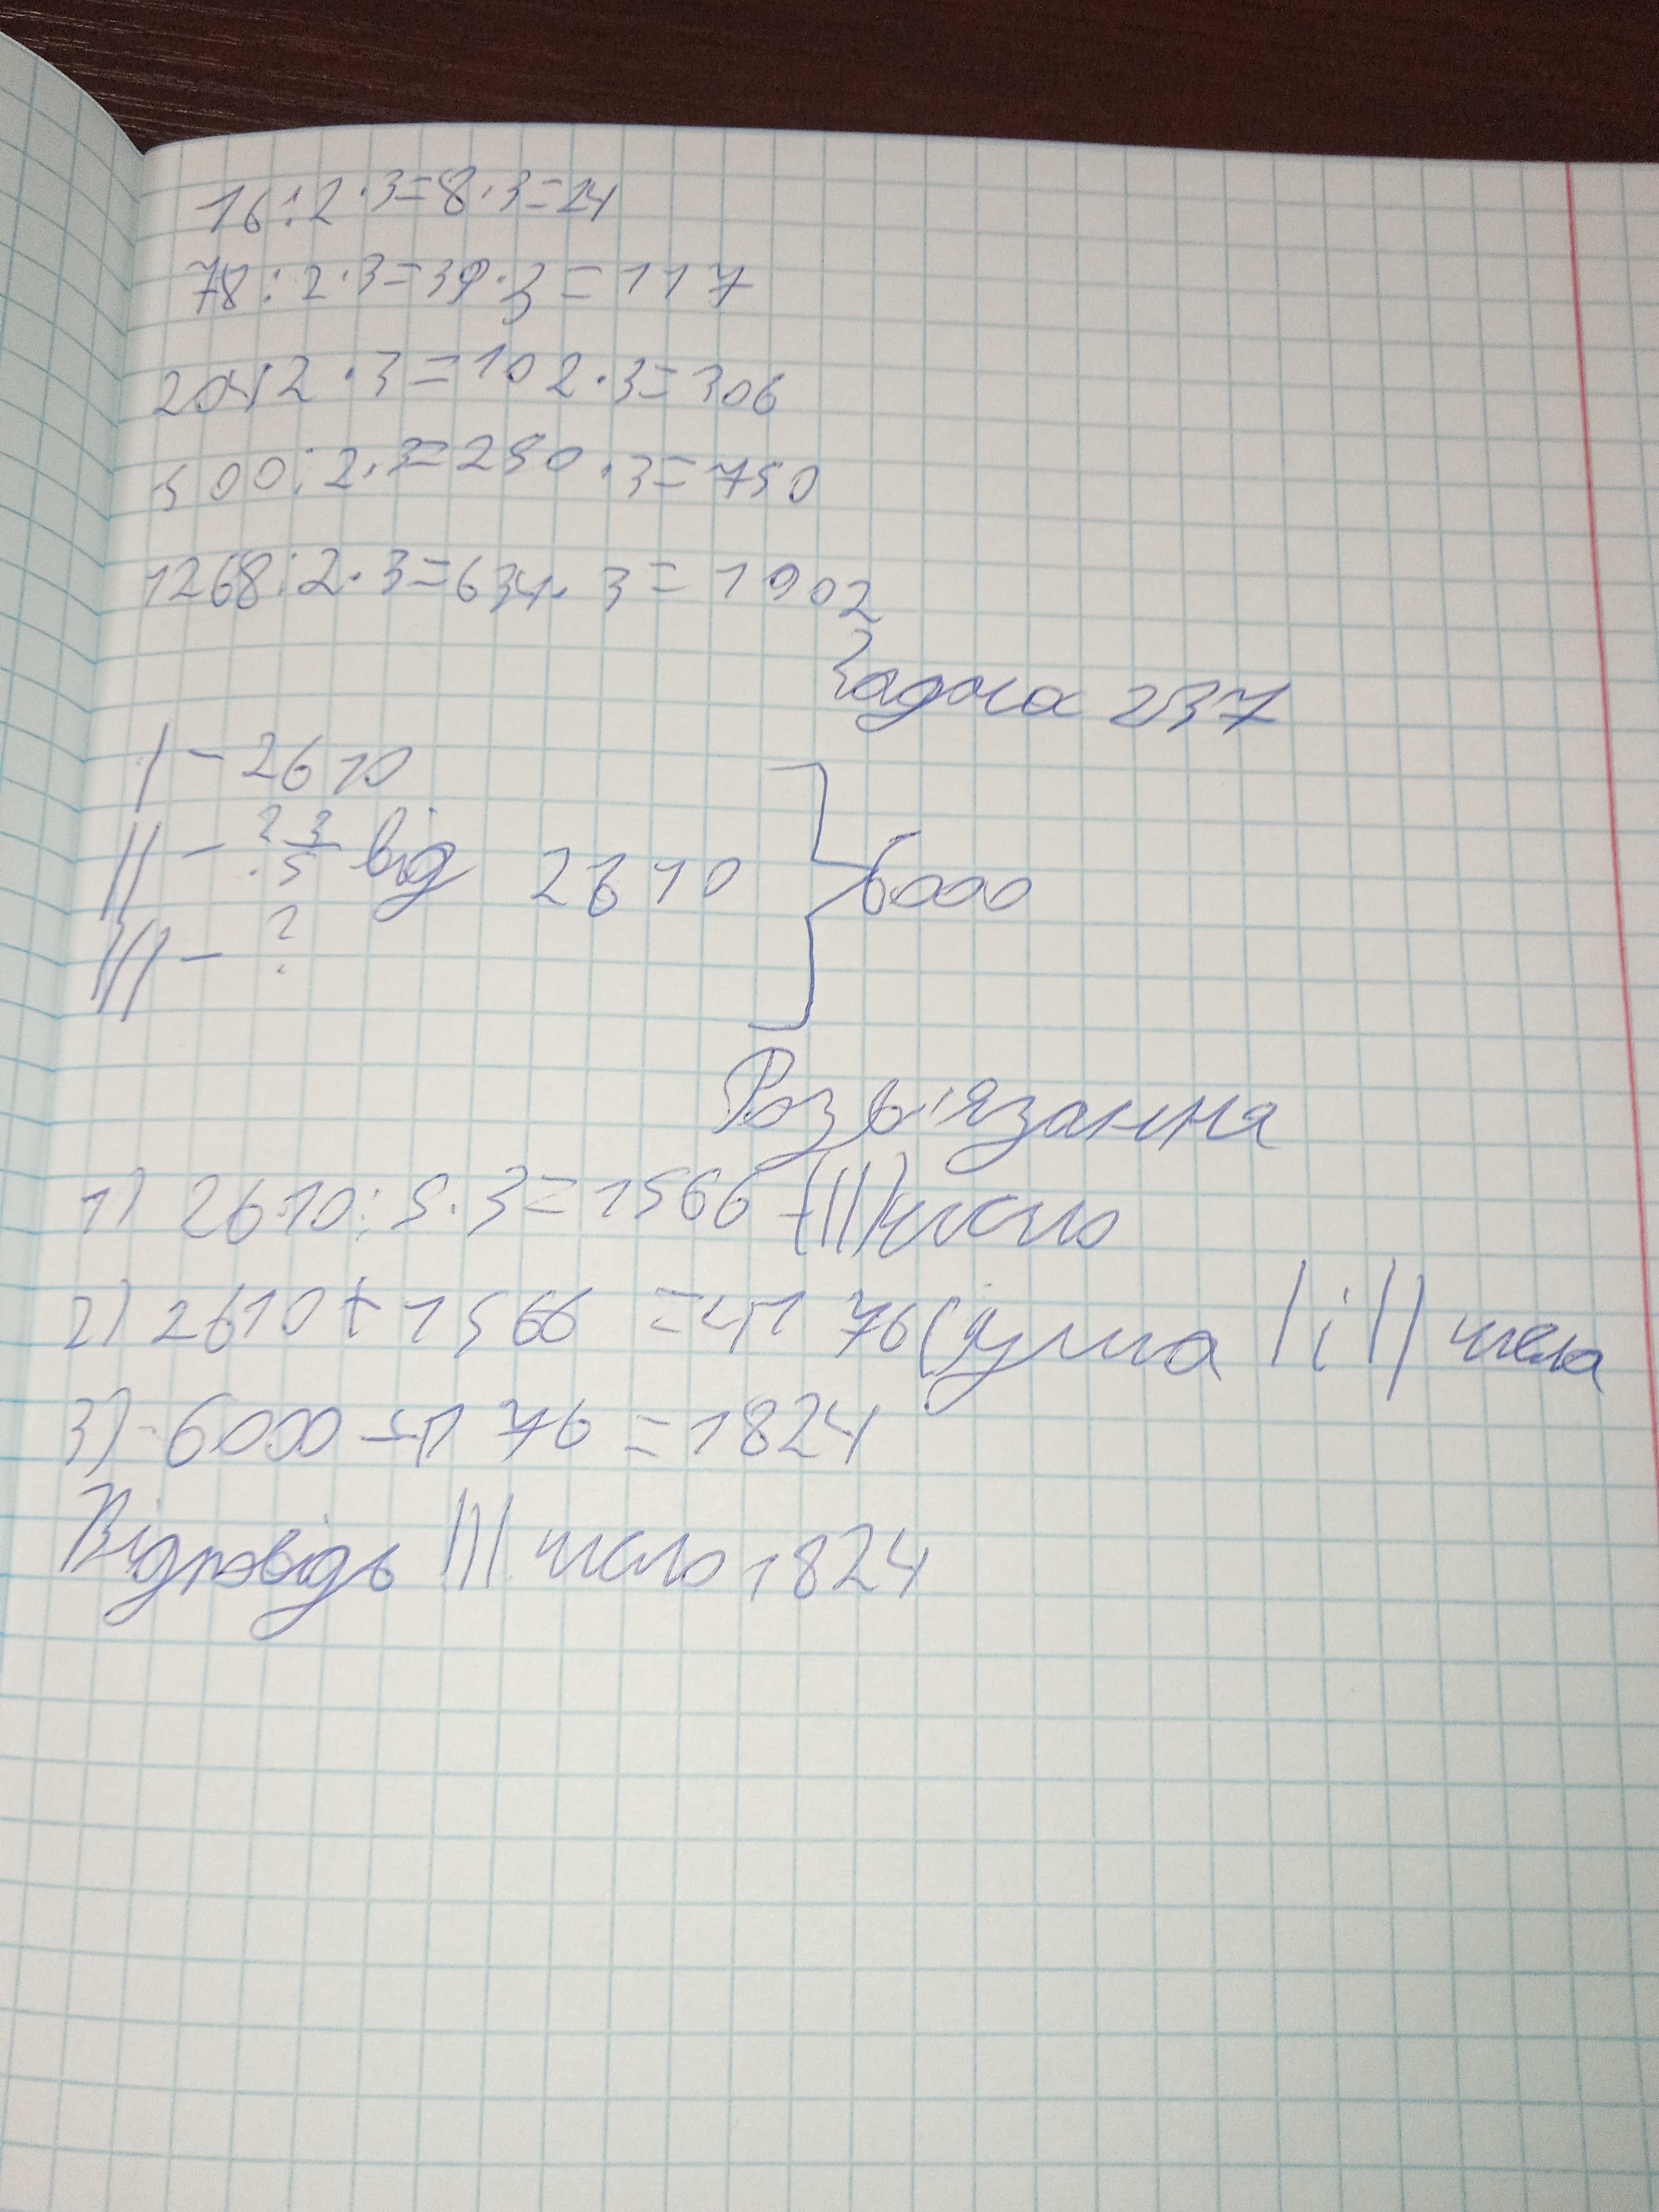 16:2·3=8·3=24
78:2·3=39·3=117
204:2·3=102·3=306
500:2·3=250·3=750
1268:2·3=634·3=1902
Задача 237
I - 2610
II - ? 3/5 від 2610
6000
III - ?
Розв'язання
1) 2610:5·3=1566 - (II) число
2) 2610+1566=4176 (сума I і II числа
3) 6000-4176=1824
Відповідь III число 1824